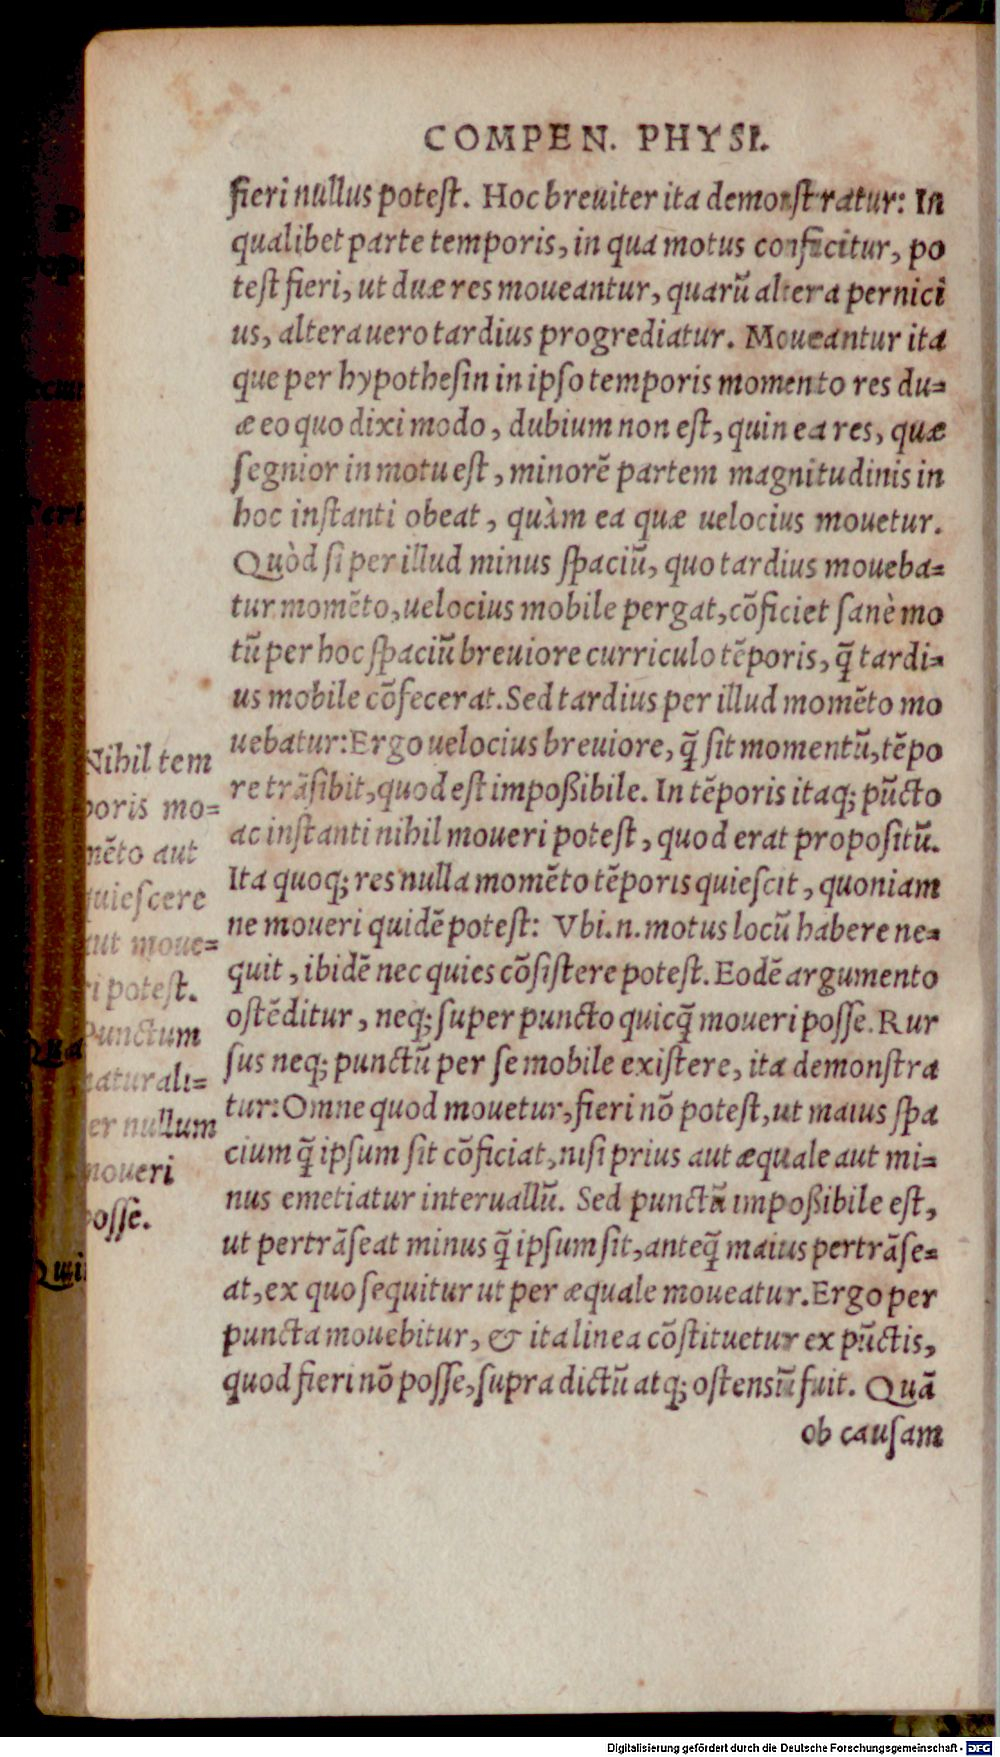 COMPEN. PHYSI.
fieri nullus poteſt. Hoc breuiter ita demonſtratur: In
qualibet parte temporis, in qua motus conficitur, po
teſt fieri, ut duæ res moueantur, quarū altera pernici
us, altera uero tardius progrediatur. Moueantur ita
que per hypotheſin in ipſo temporis momento res du=
æ eo quo dixi modo, dubium non eſt, quin ea res, quæ
ſegnior in motu eſt, minorē partem magnitudinis in
hoc inſtanti obeat, quàm ea quæ uelocius mouetur.
Quòd ſi per illud minus ſpaciū, quo tardius moueba=
tur momēto, uelocius mobile pergat, cōficiet ſanè mo
tū per hoc ſpaciū breuiore curriculo tēporis, q̄ tardi=
us mobile cōfecerat. Sed tardius per illud momēto mo
uebatur: Ergo uelocius breuiore, q̄ ſit momentū, tēpo
re trāſibit, quod eſt impoßibile. In tēporis itaq; pūcto
ac inſtanti nihil moueri poteſt, quod erat propoſitū.
Ita quoq; res nulla momēto tēporis quieſcit, quoniam
ne moueri quidē poteſt: Vbi.n. motus locū habere ne=
quit, ibidē nec quies cōſiſtere poteſt. Eodē argumento
oſtēditur, neq; ſuper puncto quicq̄ moueri poſſe. Rur
ſus neq; punctū per ſe mobile exiſtere, ita demonſtra
tur: Omne quod mouetur, fieri nō poteſt, ut maius ſpa
cium q̄ ipſum ſit cōficiat, niſi prius aut æquale aut mi=
nus emetiatur interuallū. Sed punctū impoßibile eſt,
ut pertrāſeat minus q̄ ipſum ſit, anteq̄ maius pertrāſe=
at, ex quo ſequitur ut per æquale moueatur. Ergo per
puncta mouebitur, & ita linea cōſtituetur ex pūctis,
quod fieri nō poſſe, ſupra dictū atq; oſtensū fuit. Quā
ob cauſam
Nihil tem
poris mo=
mēto aut
quieſcere
aut moue=
ri poteſt.
Punctum
naturali=
ter nullum
moueri
poſſe.
Digitalisierung gefördert durch die Deutsche Forschungsgemeinschaft - DFG